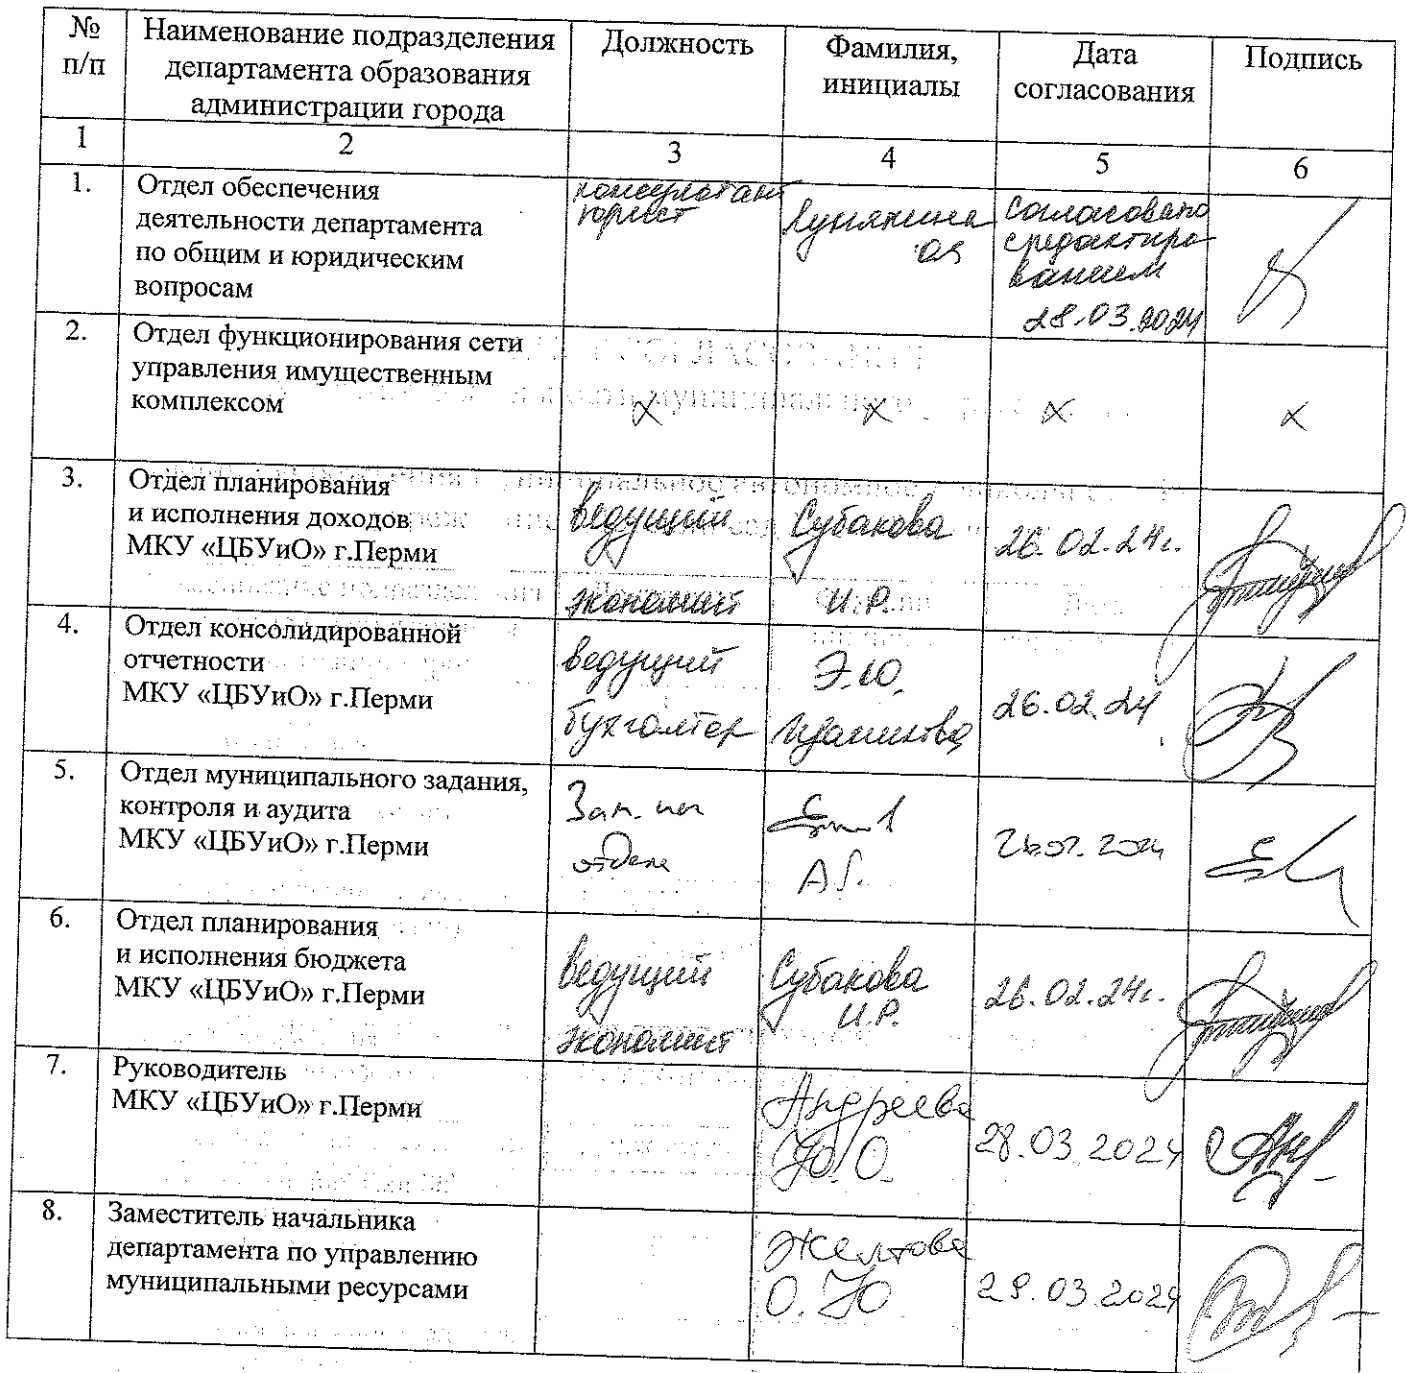 № п/п
Наименование подразделения
департамента образования
администрации города
Должность
Фамилия,
инициалы
Дата
согласования
Подпись
1
2
3
4
5
6
1.
Отдел обеспечения
деятельности департамента
по общим и юридическим
вопросам
консультант
юрист
Согласовано
с редактиро-
ванием
28.03.2024
2.
Отдел функционирования сети
управления имущественным
комплексом
х
х
х
х
3.
Отдел планирования
и исполнения доходов
МКУ «ЦБУиО» г.Перми
ведущий
экономист
Субакова
И.Р.
26.02.24г.
4.
Отдел консолидированной
отчетности
МКУ «ЦБУиО» г.Перми
ведущий
бухгалтер
Э.Ю.
26.02.24
5.
Отдел муниципального задания,
контроля и аудита
МКУ «ЦБУиО» г.Перми
Зам. нач
отдела
6.
Отдел планирования
и исполнения бюджета
МКУ «ЦБУиО» г.Перми
ведущий
экономист
Субакова
И.Р.
26.02.24г.
7.
Руководитель
МКУ «ЦБУиО» г.Перми
Андреева
Ю.О.
28.03.2024
8.
Заместитель начальника
департамента по управлению
муниципальными ресурсами
Желтова
О.Ю
29.03.2024